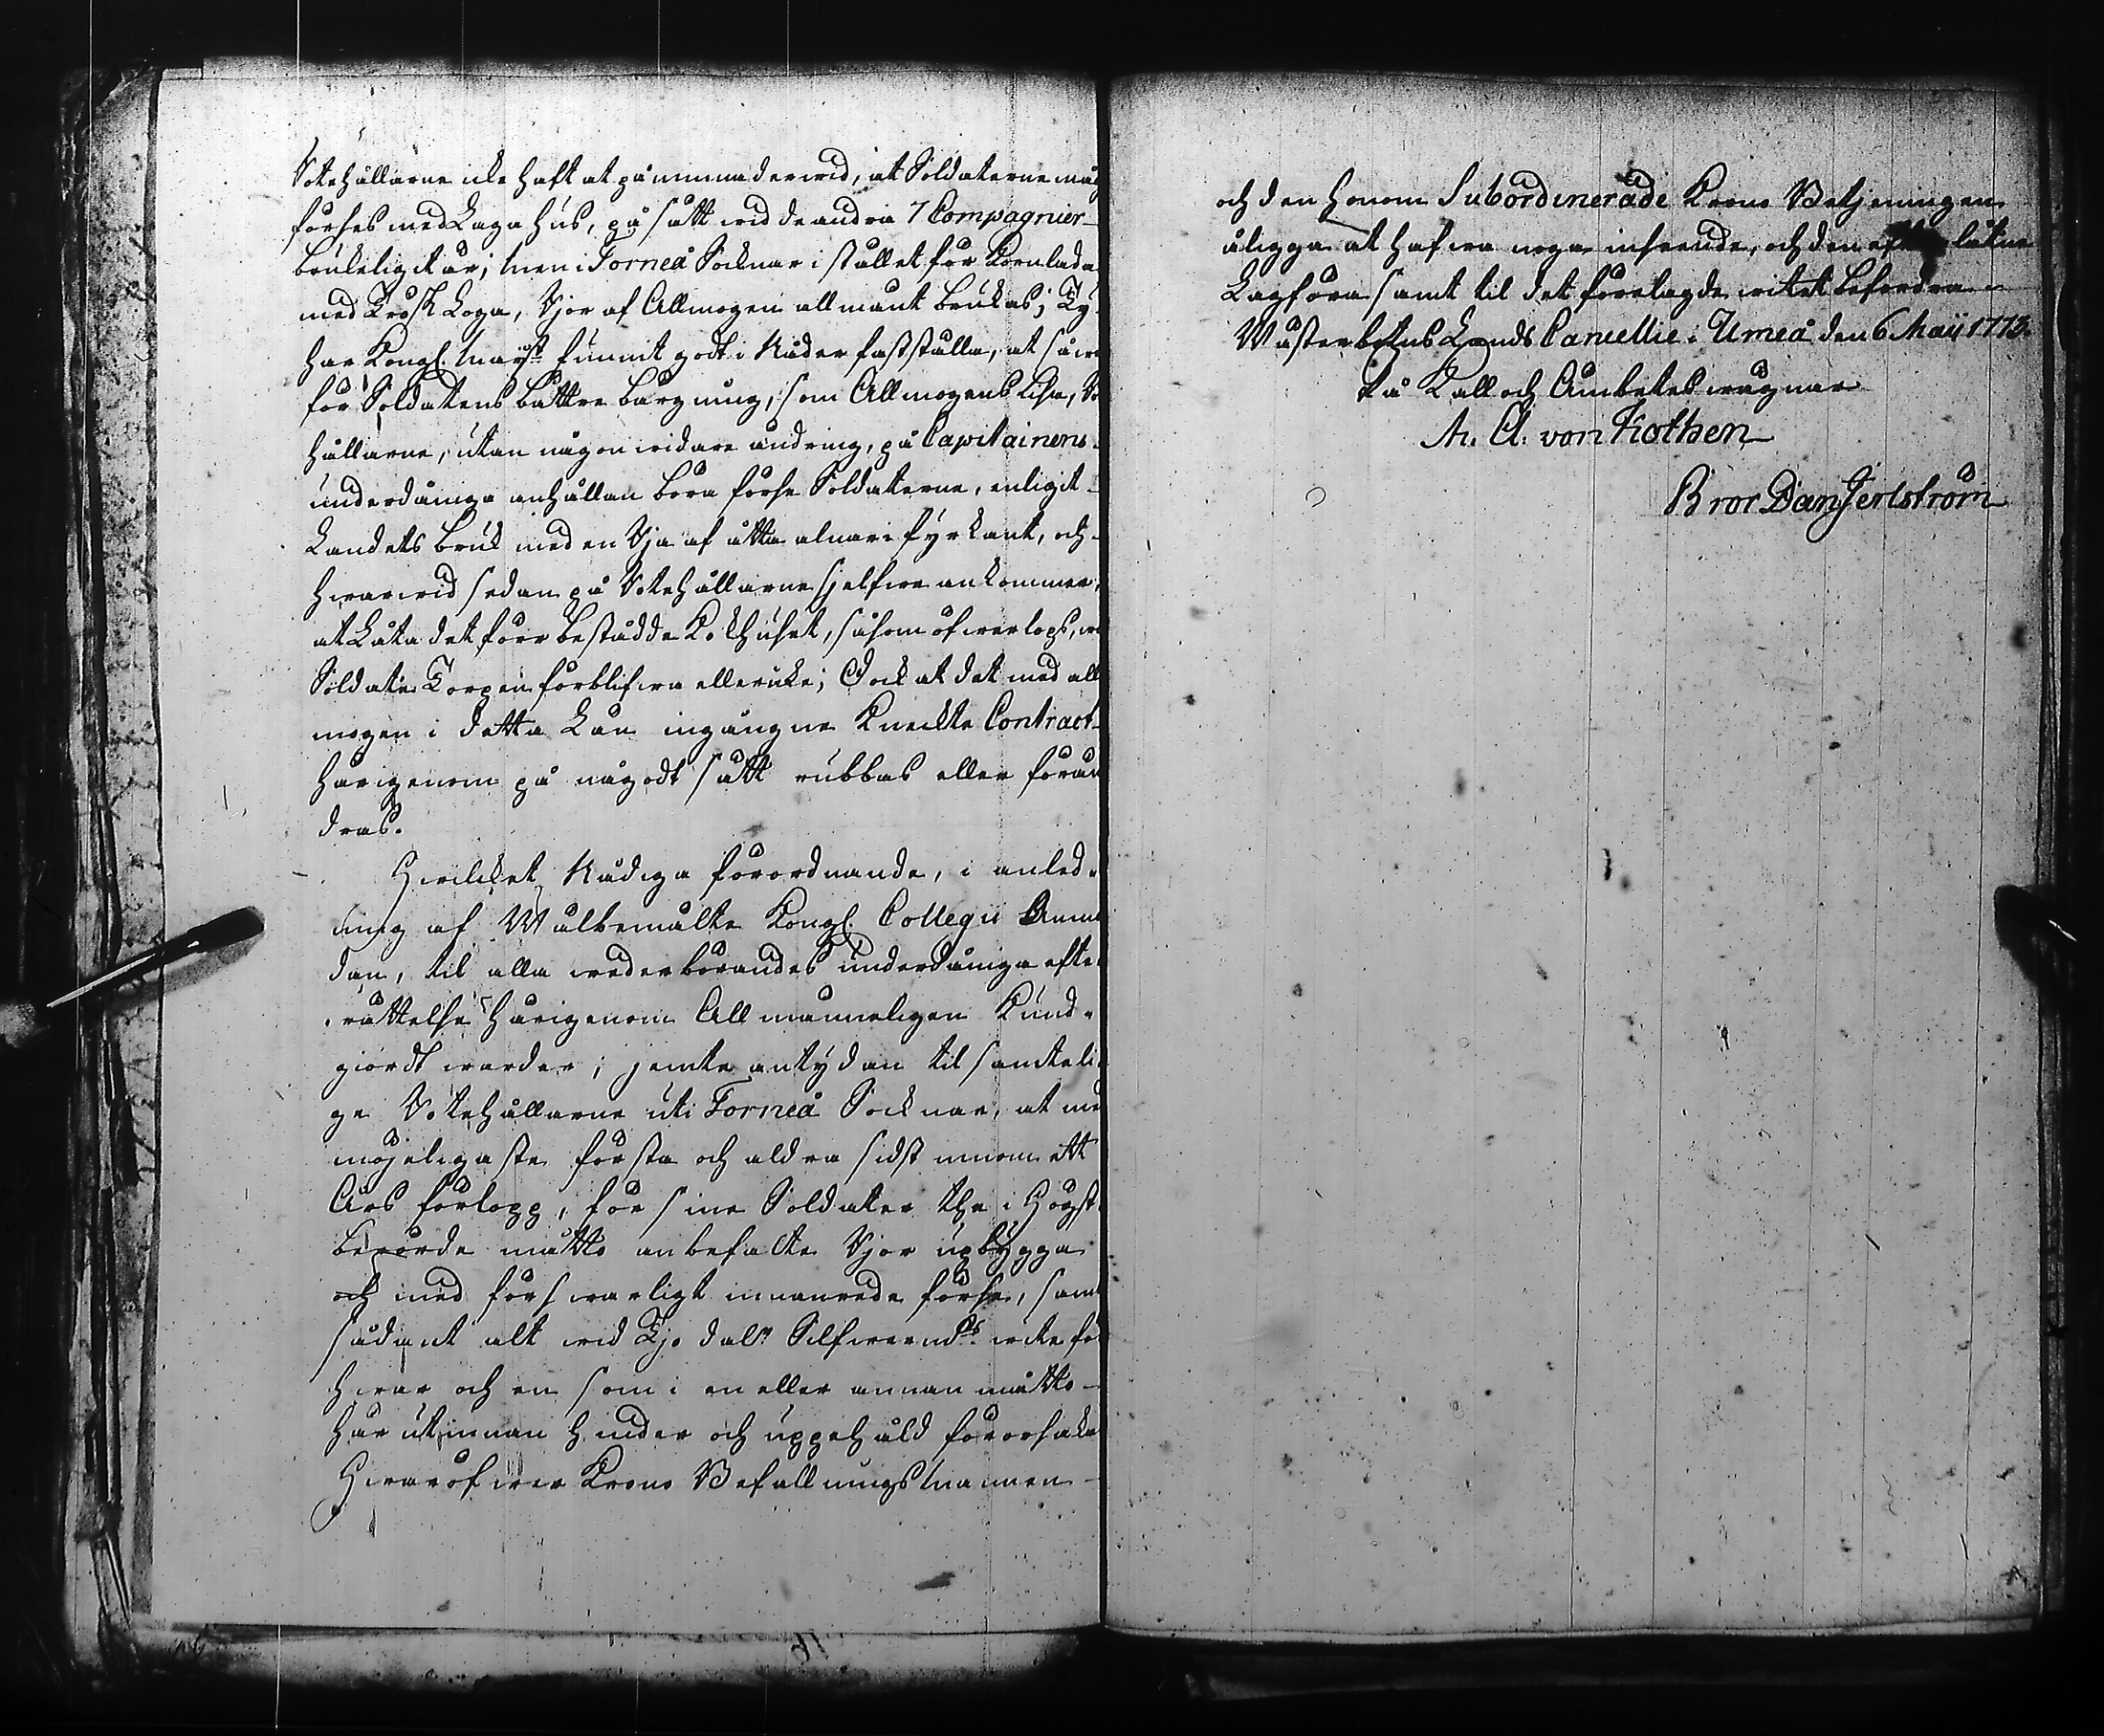 Rotehållarne icke haft at påminna derwid, at Soldaterne måg
förses med Laga hus, på sätt wid de andra 7 Compagnier
brukeligit är; Men i Torneå Socknar i stället för Kornlada
med Trösk Loga, Rjor af Allmogen allmänt brukas; Ty
har Kongl. Mayst. funnit godt i Nåder fastställa, at så wä
för Soldatens bättre bärgning, som Allmogens lisa, Ro
hållarne, utan någon widare ändring, på Capitainens
underdåniga anhållan böra förse Soldaterne, enligit
Landets bruk med en Rja af åtta alnar i fyrkant, och
hwarwid sedan på Rotehållarne sjelfwe ankommer,
at Låta det förr bestådda Kokhuset, såsom öfwerlops, wi
Soldate Torpen förblifwa eller icke; Dock at det med all
mogen i detta Län ingångne Kneckte Contract
härigenom på någodt sätt rubbas eller förän
dras.
Hwilcket Nådiga förordnande, i anled-
ning af Wälbemälte Kongl. Collegii Anmo
dan, til alla wederbörandes underdåniga efte
rättelse härigenom Allmänneligen Kund-
giordt warder; jemte antydan til samteli
ge Rotehållarne uti Torneå Socknar, at me
möjeligaste första och aldra sidst innom ett
Års förlopp, för sine Soldater the i Högst
berörde måtto anbefalte Rjor upbygga
och med förswarligt innanrede förse, samt
sådant alt wid Tjo dalr Silfwermts wite fö
hwar och en som i en eller annan måtto
här utinnan hinder och uppehåld förorsaka
Hwaröfwer Krono Befallningsmannen
och den honom Subordinerade Krono Betjeningen
åligga at hafwa noga inseende, och den efterlåtne
Lagföra samt til det förelagde witet befordra
Wästerbotns Lands Cancellie i Umeå den 6 Maii 1773.
På Kall och Ämbetes wägnar
M. A. von Kothen
Bror Dan Jerlström